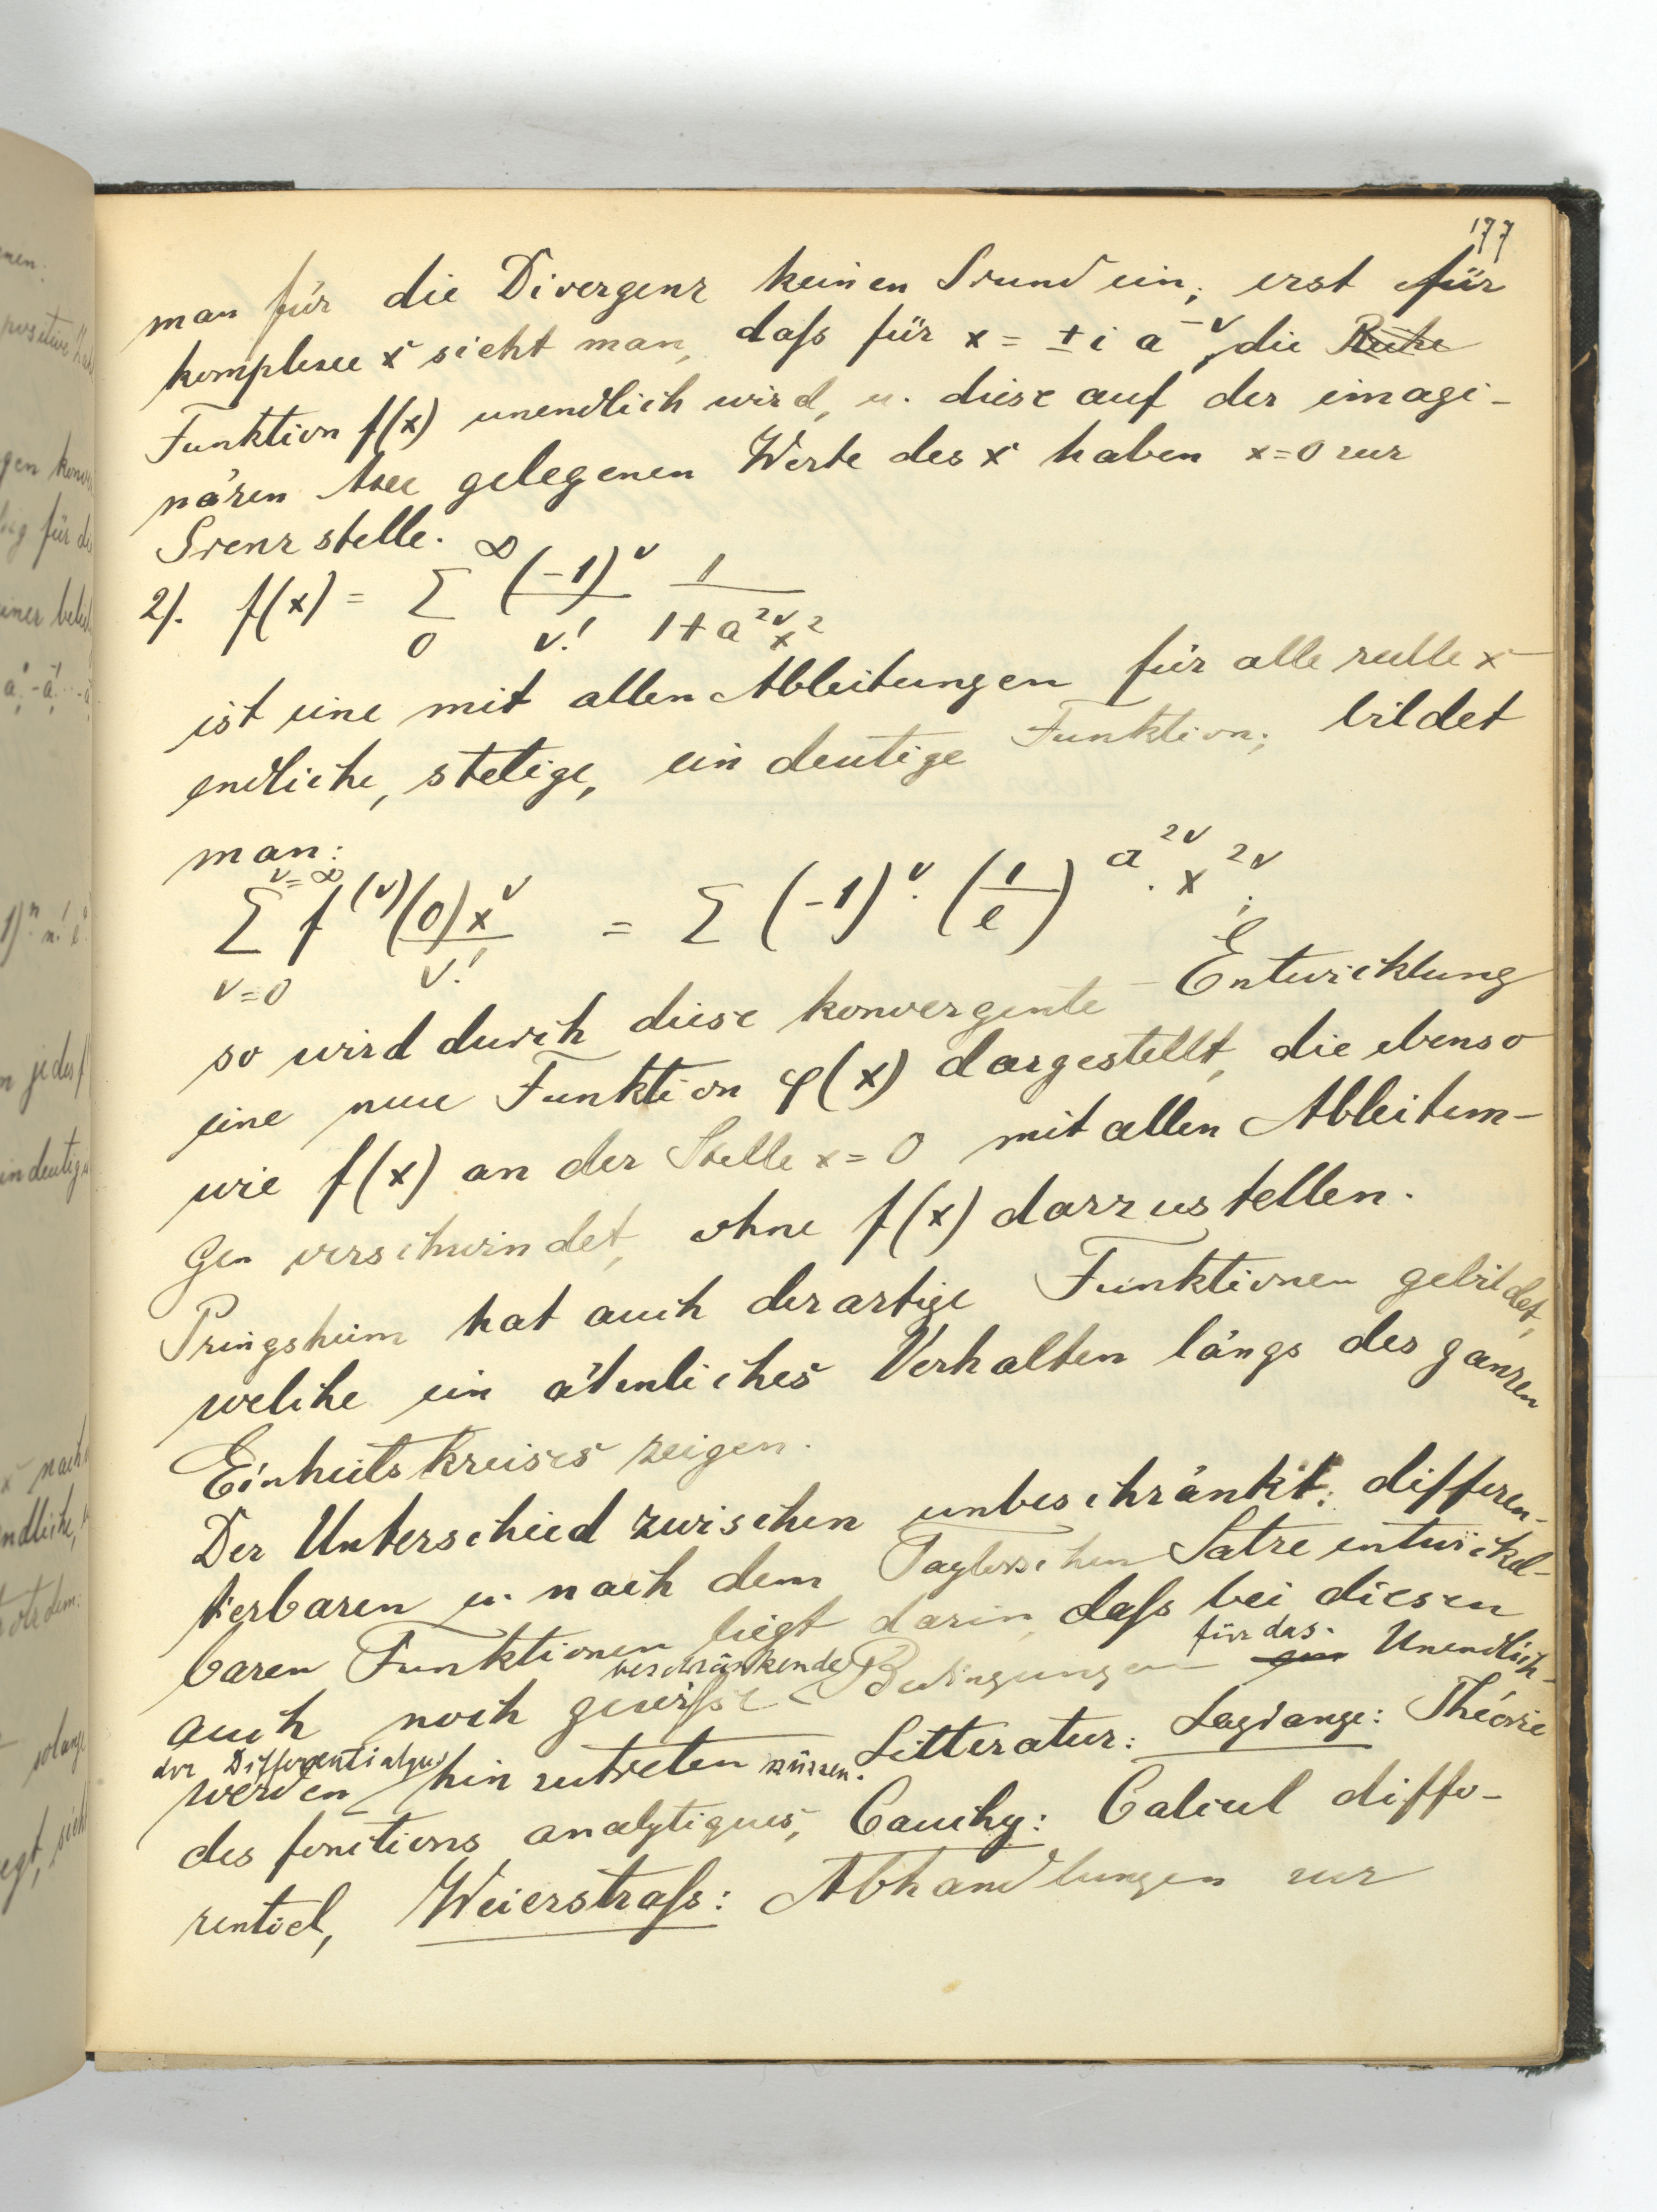 177
man für die Divergenz keinen Grund ein; erst für
komplexe x sieht man, daſs für x = ± i a^-ν, die Reihe
Funktion f(x) unendlich wird, u. diese auf der imagi-
nären Axe gelegenen Werte des x haben x=0 zur
Grenzstelle.
2). f(x) = ∞ Σ 0 (-1)^ν / ν! 1 / 1+a^2ν x^2
ist eine mit allen Ableitungen für alle reelle x
endliche, stetige, eindeutige Funktion; bildet
man:
ν=∞ Σ ν=0 f^(ν)(0) x^ν / ν! = Σ (-1)^ν · (1/e)^a^2ν · x^2ν ;
so wird durch diese konvergente Entwicklung
eine neue Funktion φ(x) dargestellt, die ebenso
wie f(x) an der Stelle x=0 mit allen Ableitun-
gen verschwindet, ohne f(x) darzustellen.
Pringsheim hat auch derartige Funktionen gebildet,
welche ein ähnliches Verhalten längs des ganzen
Einheitskreises zeigen.
Der Unterschied zwischen unbeschränkt: differen-
tierbaren u. nach dem Taylorschen Satze entwickel-
baren Funktionen liegt darin, daſs bei diesen
auch noch gewiſse beschränkende Bedingungen für das Unendlich-
werden der Differentialqu hinzutreten müssen. Litteratur: Lagrange: Théorie
des fonctions analytiques, Cauchy: Calcul diffe-
rentiel, Weierstraſs: Abhandlungen zur